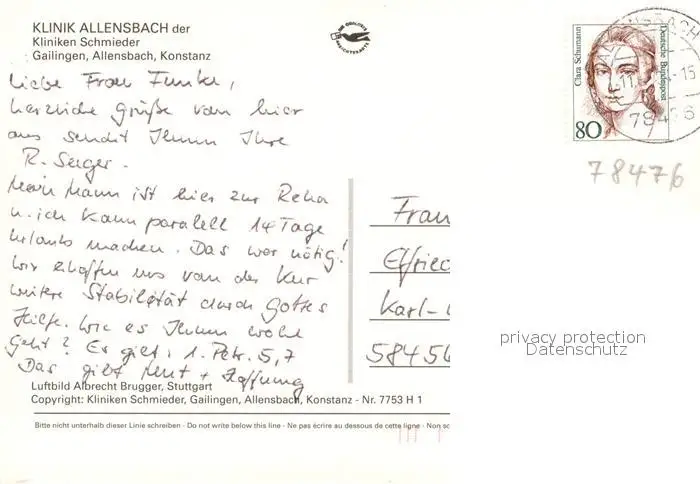 KLINIK ALLENSBACH der
Kliniken Schmieder
Gailingen, Allensbach, Konstanz
Liebe Frau Funke,
herzliche Grüße von hier
aus sendet Ihnen Ihre
R. Seeger.
Mein Mann ist hier zur Reha
u. ich kann parallel 14 Tage
Urlaub machen. Das war nötig!
Wir erhoffen uns von der Kur
weitere Stabilität durch Gottes
Hilfe. Wie es Ihnen wohl
geht? Es gilt: 1. Petr. 5,7
Das gibt Mut + Hoffnung
Luftbild Albrecht Brugger, Stuttgart
Copyright: Kliniken Schmieder, Gailingen, Allensbach, Konstanz - Nr. 7753 H 1
Bitte nicht unterhalb dieser Linie schreiben - Do not write below this line - Ne pas écrire au dessous de cette ligne - Non sc
Clara Schumann
Deutsche Bundespost
80
-15
78476
Frau
Elfried
Karl-
58456
privacy protection
Datenschutz